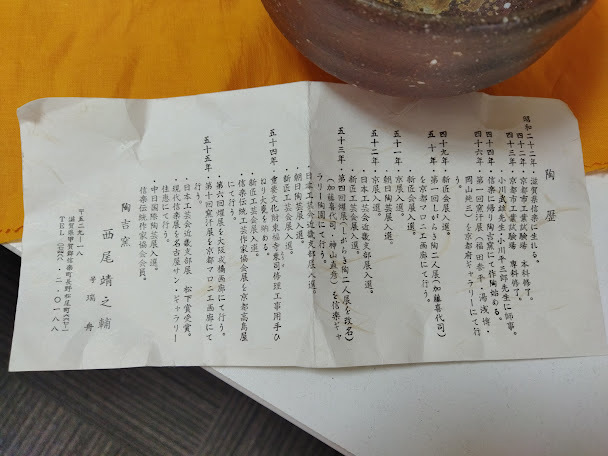 陶歴
昭和二十二年・滋賀県信楽に生れる。
四十二年・京都市工業試験場 本科修了。
四十三年・京都市工業試験場 専科修了。
・小川歳雄先生・小川平三郎先生に師事。
四十四年・信楽長野陶吉窯にて作陶始める。
四十六年・第一回窯汗展
岡山純三)を京都府ギャラリーにて行
う。
四十九年・新匠会展入選。
五十年・第一回しがらき陶二人展(加藤喜代司)
を京都マロニエ画廊にて行う。
五十一年・京展入選。
・朝日陶芸展入選。
五十二年・京展入選。
・日本工芸会近畿支部展入選。
・新匠工芸会展入選。
五十三年・第四回燿展(しがらき陶二人展を改名)
(加藤喜代司・神山直彦)を信楽ギャ
ラリー陶園にて行う。
・日本工芸会近畿支部展入選。
・朝日陶芸展入選。
・新匠工芸会展入選。
五十四年・重要文化財東福寺東司修理工事用手ひ
ねり大甕を納める。
・新匠工芸会展入選。
・信楽伝統工芸作家協会展を京都高島屋
にて行う。
五十五年・第六回燿展を大阪成橋画廊にて行う。
・第十回窯汗展を京都マロニエ画廊にて
行う。
・日本工芸会近畿支部展 松下賞受賞。
・現代信楽展を名古屋サン・ギャラリー
住恵にて行う。
・中日国際陶芸展入選。
信楽伝統工芸作家協会会員。
陶吉窯
西尾靖之輔
号 瑞舟
滋賀県甲賀郡信楽町長野松尾町
TEL